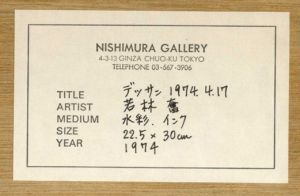 NISHIMURA GALLERY
4-3-13 GINZA CHUO-KU TOKYO
TELEPHONE 03-567-3906
TITLE デッサン 1974. 4.17
ARTIST 若林 奮
MEDIUM 水彩. インク
SIZE 22.5 × 30cm
YEAR 1974